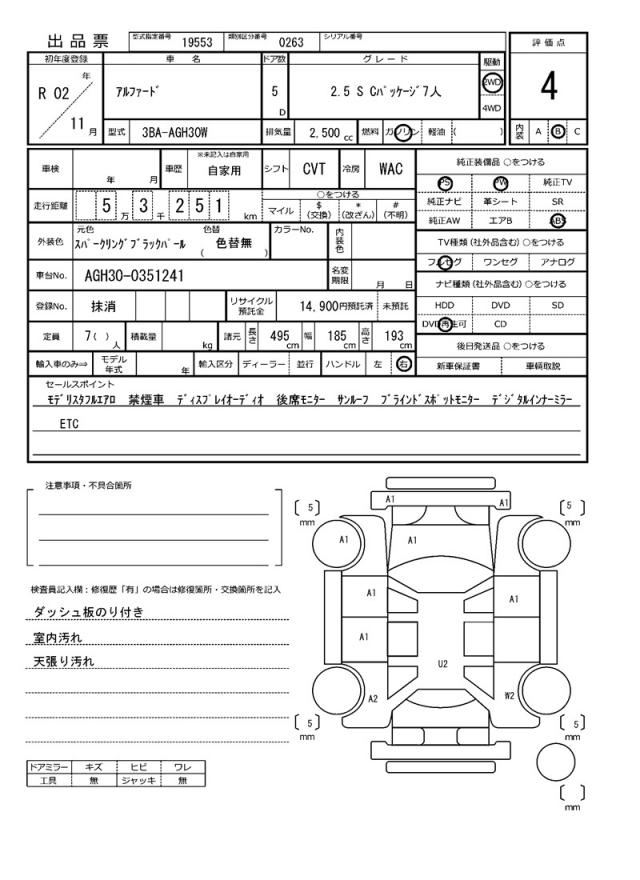 出品票 型式指定番号 19553 類別区分番号 0263 シリアル番号
評価点
4
初年度登録 車名 ドア数 グレード 駆動
R 02 年 11 月
アルファード 5 D 2.5 S Cパッケージ7人 2WD 4WD
型式 3BA-AGH30W 排気量 2,500 cc 燃料 ガソリン 軽油 ( ) 内装 A B C
車検 年 月 車歴 ※未記入は自家用 自家用 シフト CVT 冷房 WAC
走行距離 5 万 3 千 2 5 1 km ○をつける マイル $(交換) *(改ざん) #(不明)
外装色 元色 スパークリングブラックパール 色替 ( 色替無 ) カラーNo. 内装色
車台No. AGH30-0351241 名変期限 月 日
登録No. 抹消 リサイクル預託金 14,900円預託済 未預託
定員 7( ) 人 積載量 kg 諸元 長さ 495 cm 幅 185 cm 高さ 193 cm
輸入車のみ⇒ モデル年式 年 輸入区分 ディーラー 並行 ハンドル 左 右
純正装備品 ○をつける
PS PW 純正TV
純正ナビ 革シート SR
純正AW エアB ABS
TV種類(社外品含む) ○をつける
フルセグ ワンセグ アナログ
ナビ種類(社外品含む) ○をつける
HDD DVD SD
DVD再生可 CD
後日発送品 ○をつける
新車保証書 車輌取説
セールスポイント
モデリスタフルエアロ 禁煙車 ディスプレイオーディオ 後席モニター サンルーフ ブラインドスポットモニター デジタルインナーミラー
ETC
注意事項・不具合箇所
検査員記入欄：修復歴「有」の場合は修復箇所・交換箇所を記入
ダッシュ板のり付き
室内汚れ
天張り汚れ
ドアミラー キズ ヒビ ワレ
工具 無 ジャッキ 無
A1 A1
[ 5 ] mm [ 5 ] mm
A1 A1
A1 A1
A1
U2
A2 W2
[ 5 ] mm [ 5 ] mm
[ ] mm